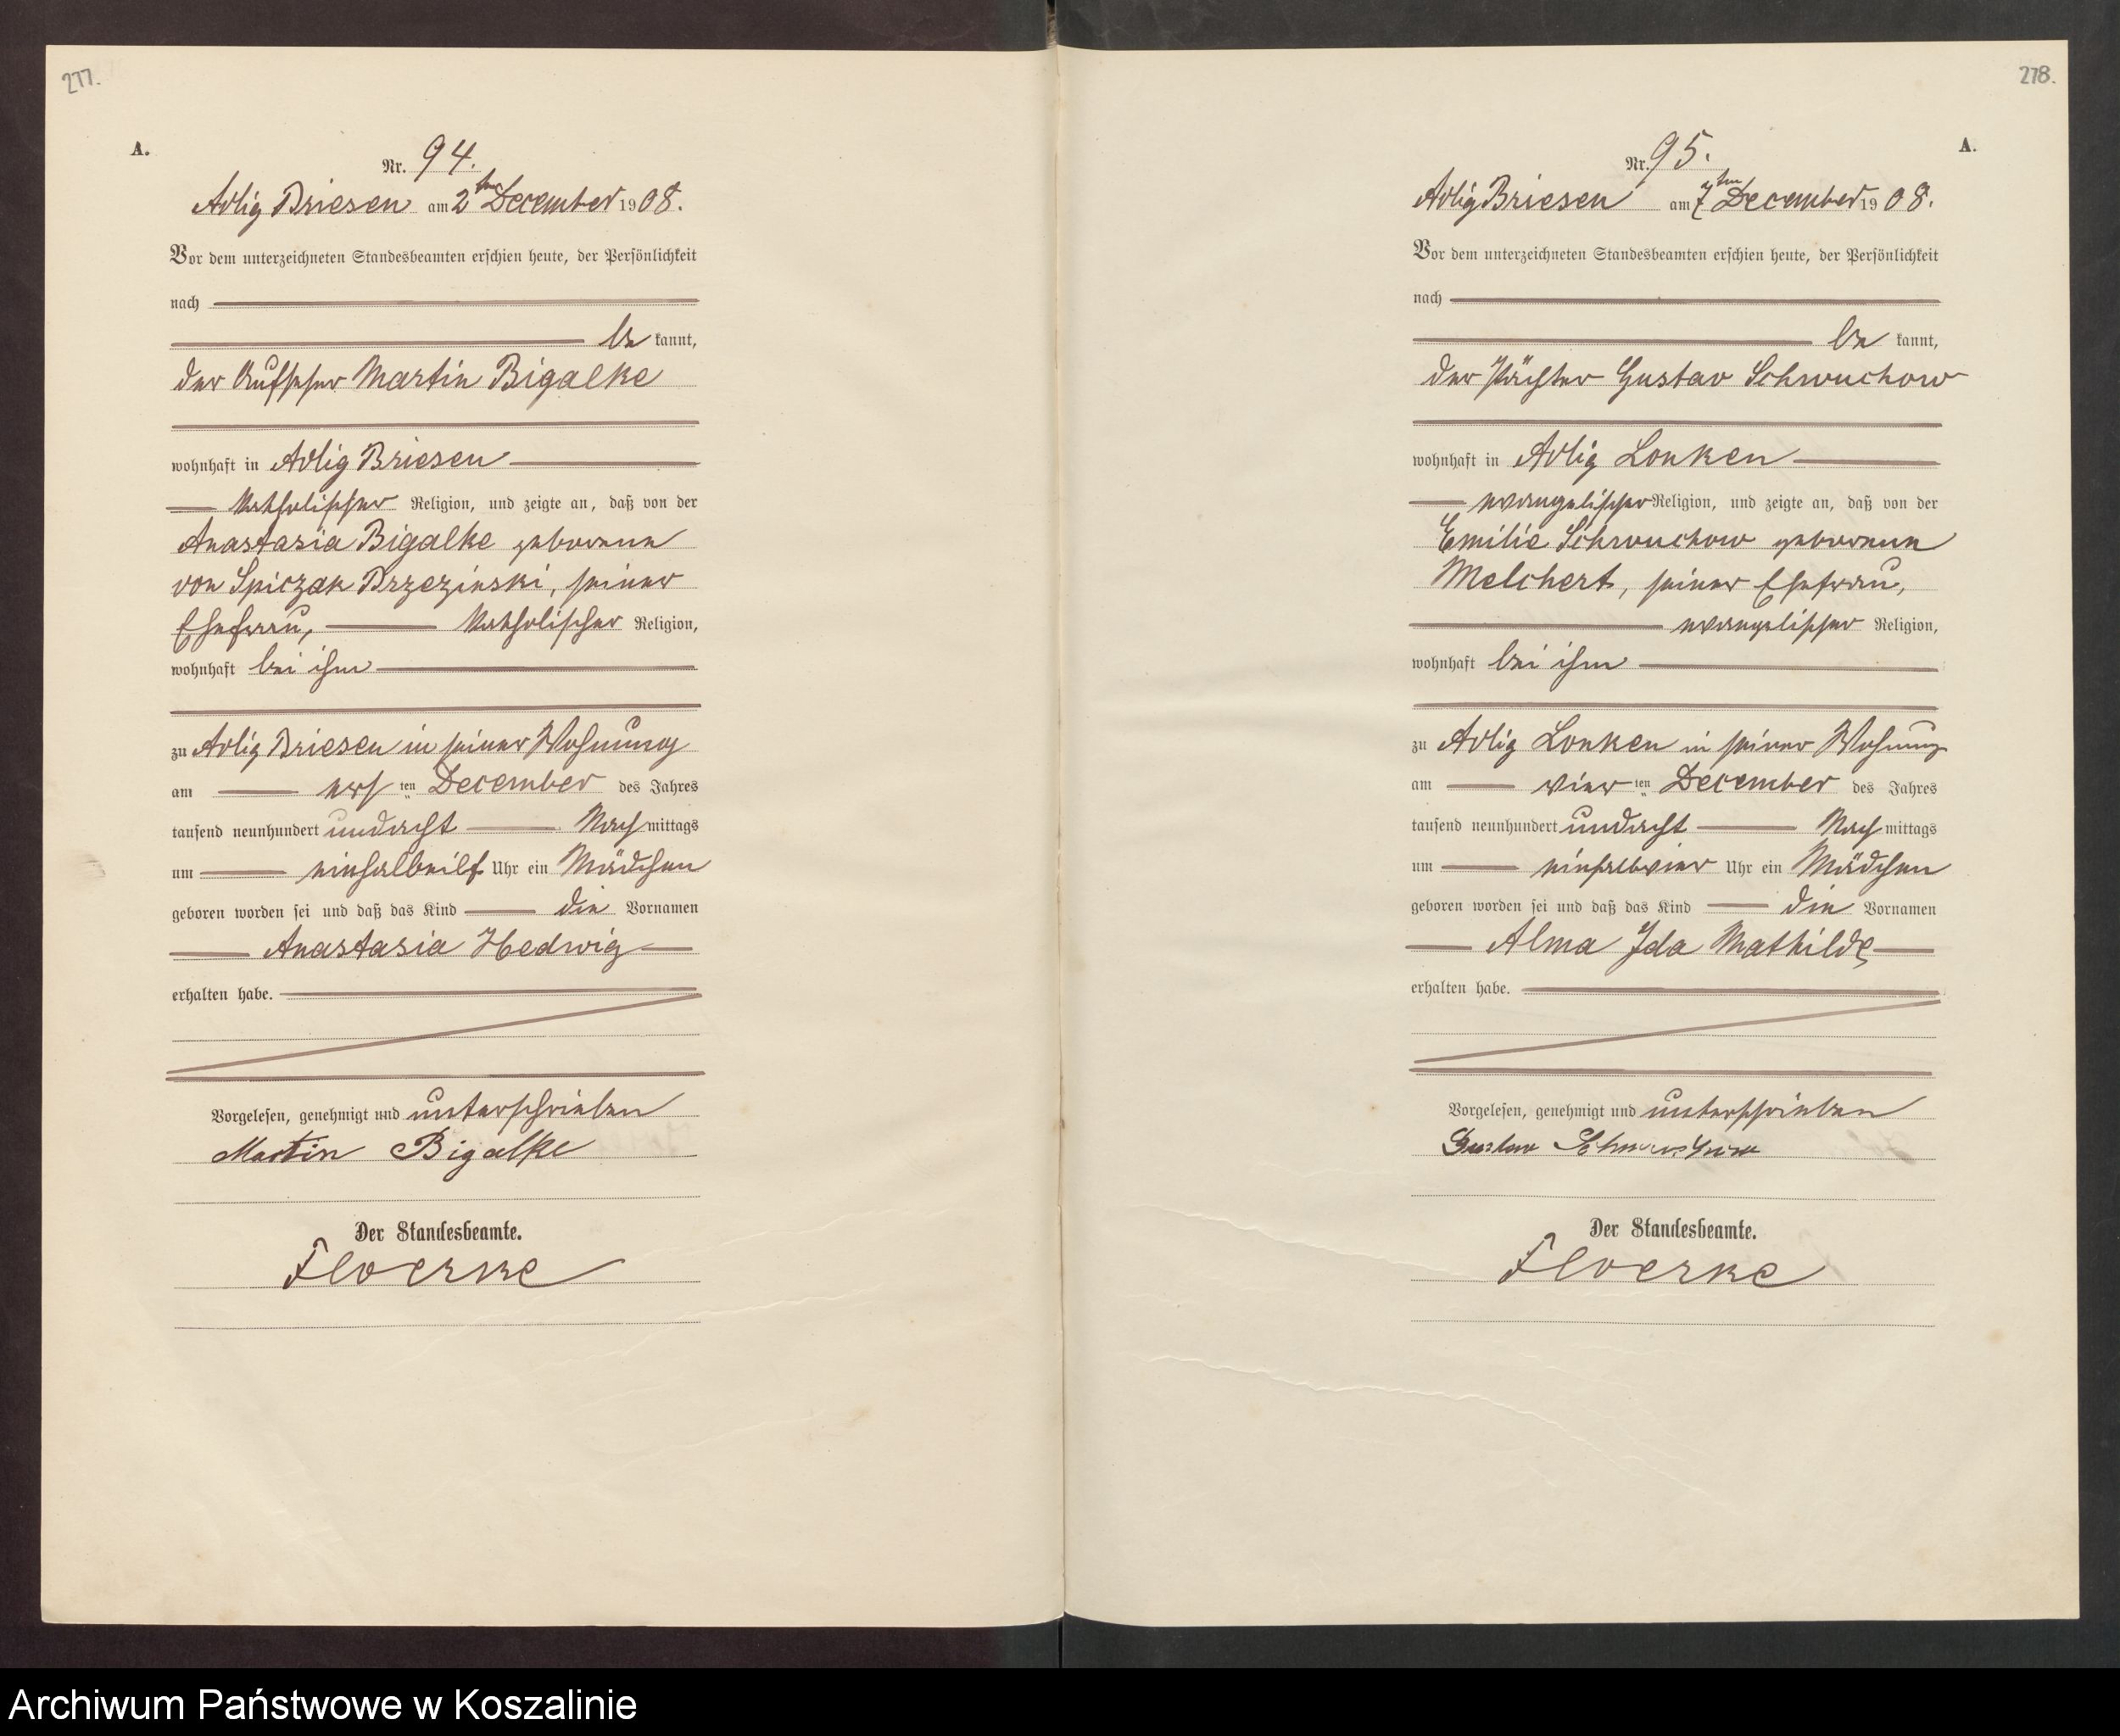 277.
A.
Nr. 94.
Adlig Briesen am 2ten December 1908.
Vor dem unterzeichneten Standesbeamten erschien heute, der Persönlichkeit
nach
be kannt,
der Aufseher Martin Bigalke
wohnhaft in Adlig Briesen
katholischer Religion, und zeigte an, daß von der
Anastasia Bigalke geborenen
von Spiczak Brzezinski, seiner
Ehefrau, katholischer Religion,
wohnhaft bei ihm
zu Adlig Briesen in seiner Wohnung
am ersten December des Jahres
tausend neunhundert undacht Nach mittags
um einhalbeilf Uhr ein Mädchen
geboren worden sei und daß das Kind die Vornamen
Anastasia Hedwig
erhalten habe.
Vorgelesen, genehmigt und unterschrieben
Martin Bigalke
Der Standesbeamte.
Floerke
278.
A.
Nr. 95.
Adlig Briesen am 7ten December 1908.
Vor dem unterzeichneten Standesbeamten erschien heute, der Persönlichkeit
nach
be kannt,
der Pächter Gustav Schwuchow
wohnhaft in Adlig Lonken
evangelischer Religion, und zeigte an, daß von der
Emilie Schwuchow geborenen
Melchert, seiner Ehefrau,
evangelischer Religion,
wohnhaft bei ihm
zu Adlig Lonken in seiner Wohnung
am vierten December des Jahres
tausend neunhundert undacht Nach mittags
um einhalbvier Uhr ein Mädchen
geboren worden sei und daß das Kind die Vornamen
Alma Ida Mathilde
erhalten habe.
Vorgelesen, genehmigt und unterschrieben
Gustav Schwuchow
Der Standesbeamte.
Floerke
Archiwum Państwowe w Koszalinie